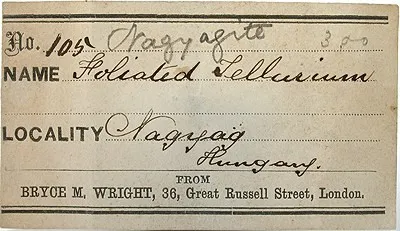 No. 105 Nagyagite 300
NAME Foliated Tellurium
LOCALITY Nagyag
Hungary.
FROM
BRYCE M. WRIGHT, 36, Great Russell Street, London.